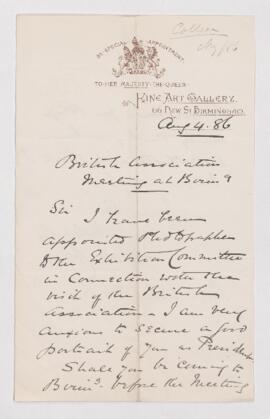 BY SPECIAL APPOINTMENT
TO HER MAJESTY THE QUEEN
FINE ART GALLERY.
66 NEW ST BIRMINGHAM.
Aug 4. 86
British Association
Meeting at Birm^m
Sir
I have been
appointed Photographer
to the Exhibition Committee
in Connection with the
visit of the British
Association - I am very
anxious to secure a good
portrait of you as President
Shall you be coming to
Birm^m before the Meeting